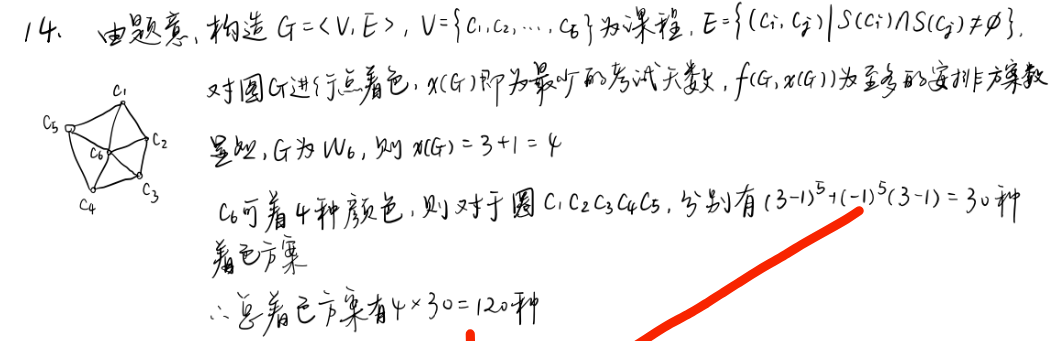 14. 由题意,构造 G=<V,E>, V={c₁,c₂,⋯,c₆}为课程, E={(cᵢ,cⱼ)|S(cᵢ)∩S(cⱼ)≠∅}.
对图G进行点着色, χ(G)即为最少的考试天数, f(G,χ(G))为至多的安排方案数
显然, G为W₆, 则χ(G)=3+1=4
C₆可着4种颜色, 则对于圈C₁C₂C₃C₄C₅, 分别有(3-1)⁵+(-1)⁵(3-1)=30种
着色方案
∴总着色方案有4×30=120种
C₁
C₅
C₂
C₆
C₃
C₄